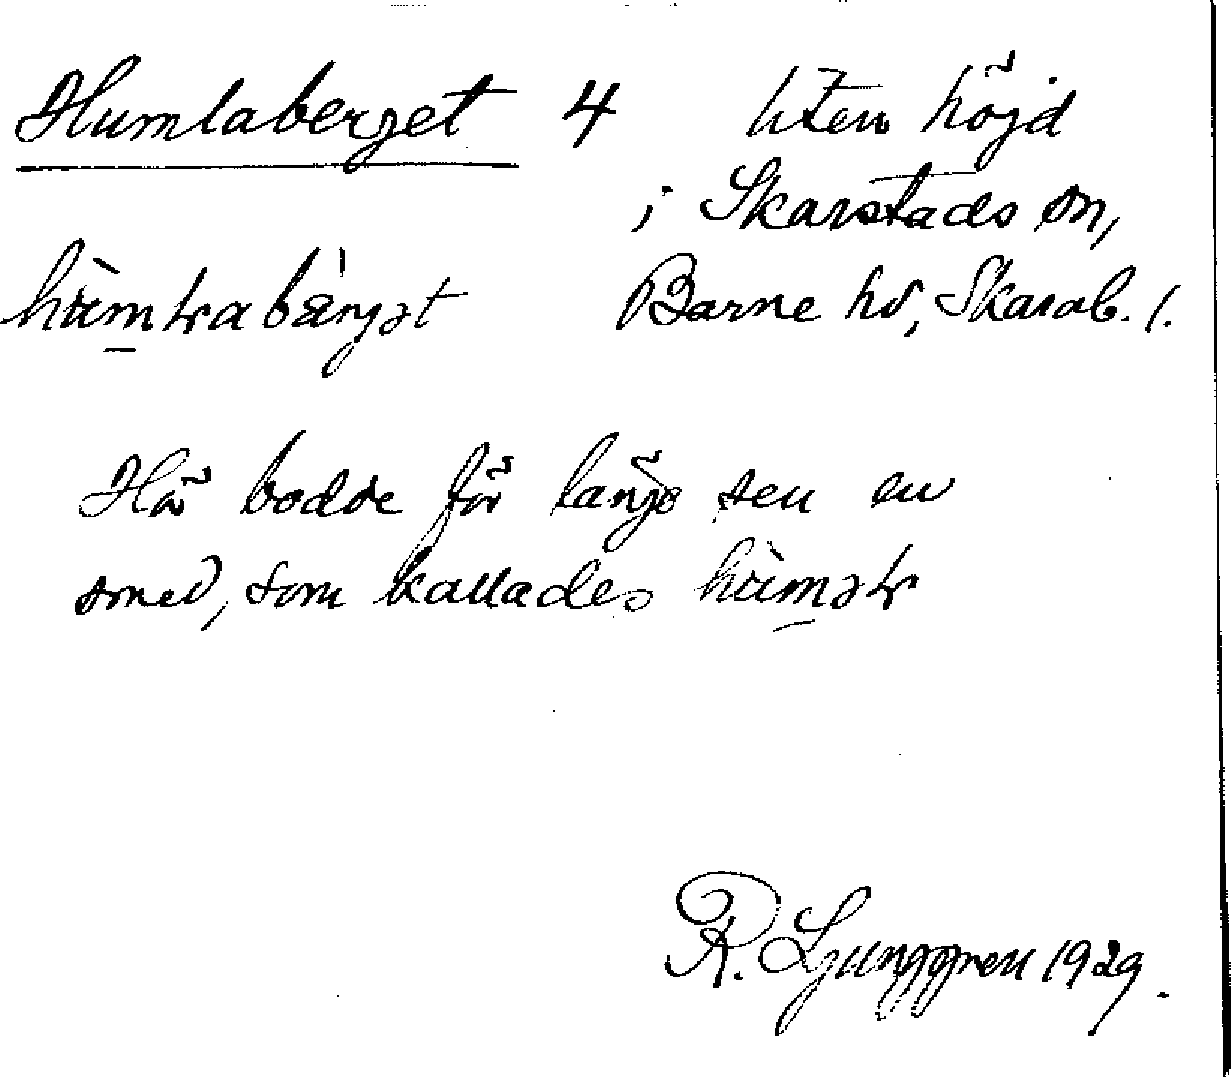 Humlaberget 4 liten höjd
i Skarstads sn,
Barne hd, Skarab. l.
Här bodde för länge sen en
smed, som kallades
R. Ljunggren 1929.